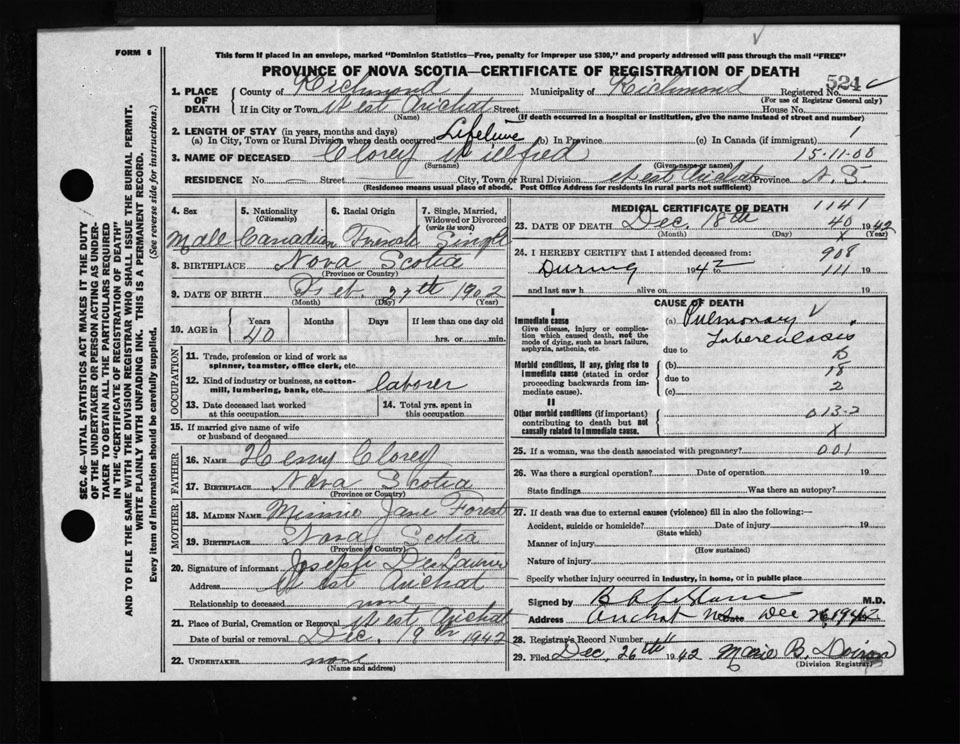 FORM 6
This form if placed in an envelope, marked "Dominion Statistics—Free, penalty for improper use $300," and properly addressed will pass through the mail "FREE"
PROVINCE OF NOVA SCOTIA—CERTIFICATE OF REGISTRATION OF DEATH
1. PLACE OF DEATH County of Richmond Municipality of Richmond Registered No. 524
(For use of Registrar General only)
If in City or Town West Arichat Street House No.
(Name) (If death occurred in a hospital or institution, give the name instead of street and number)
2. LENGTH OF STAY (in years, months and days)
(a) In City, Town or Rural Division where death occurred Lifetime (b) In Province (c) In Canada (if immigrant) 1
3. NAME OF DECEASED Clorey Willfred 15-11-00
(Surname) (Given name or names)
RESIDENCE No. — Street — City, Town or Rural Division West Arichat Province N.S.
(Residence means usual place of abode. Post Office Address for residents in rural parts not sufficient)
SEC. 46—VITAL STATISTICS ACT MAKES IT THE DUTY
OF THE UNDERTAKER OR PERSON ACTING AS UNDER-
TAKER TO OBTAIN ALL THE PARTICULARS REQUIRED
IN THE "CERTIFICATE OF REGISTRATION OF DEATH"
AND TO FILE THE SAME WITH THE DIVISION REGISTRAR WHO SHALL ISSUE THE BURIAL PERMIT.
WRITE PLAINLY WITH UNFADING INK. THIS IS A PERMANENT RECORD.
Every item of information should be carefully supplied. (See reverse side for instructions.)
4. Sex 5. Nationality (Citizenship) 6. Racial Origin 7. Single, Married, Widowed or Divorced (write the word)
Male Canadian French Single
8. BIRTHPLACE Nova Scotia
(Province or Country)
9. DATE OF BIRTH Feb. 27th 1902
(Month) (Day) (Year)
10. AGE in Years Months Days If less than one day old
40 hrs. or min.
OCCUPATION
11. Trade, profession or kind of work as spinner, teamster, office clerk, etc.
12. Kind of industry or business, as cotton-mill, lumbering, bank, etc. laborer
13. Date deceased last worked at this occupation 14. Total yrs. spent in this occupation
15. If married give name of wife or husband of deceased
FATHER
16. NAME Henry Clorey
17. BIRTHPLACE Nova Scotia
(Province or Country)
MOTHER
18. MAIDEN NAME Minnie Jane Forest
19. BIRTHPLACE Nova Scotia
(Province or Country)
20. Signature of informant Joseph
Address West Arichat
Relationship to deceased none
21. Place of Burial, Cremation or Removal West Arichat
Date of burial or removal Dec. 19 1942
22. UNDERTAKER none
(Name and address)
MEDICAL CERTIFICATE OF DEATH 1141
23. DATE OF DEATH Dec. 18th 40 1942
(Month) (Day) (Year)
24. I HEREBY CERTIFY that I attended deceased from: 908
During 1942 to 111 19
and last saw h alive on 19
CAUSE OF DEATH
I
Immediate cause
Give disease, injury or complication which caused death, not the mode of dying, such as heart failure, asphyxia, asthenia, etc.
(a) Pulmonary
Tuberculosis
due to
Morbid conditions, if any, giving rise to immediate cause (stated in order proceeding backwards from immediate cause).
(b) 18
due to
(c) 2
II
Other morbid conditions (if important) contributing to death but not causally related to immediate cause.
013-2
X
25. If a woman, was the death associated with pregnancy? 001
26. Was there a surgical operation? Date of operation 19
State findings Was there an autopsy?
27. If death was due to external causes (violence) fill in also the following:—
Accident, suicide or homicide? Date of injury 19
(State which)
Manner of injury
(How sustained)
Nature of injury
Specify whether injury occurred in industry, in home, or in public place
Signed by M.D.
Address Arichat NS Date Dec 1942
28. Registrar's Record Number
29. Filed Dec. 26th 1942 Marie B. Doiron
(Division Registrar)